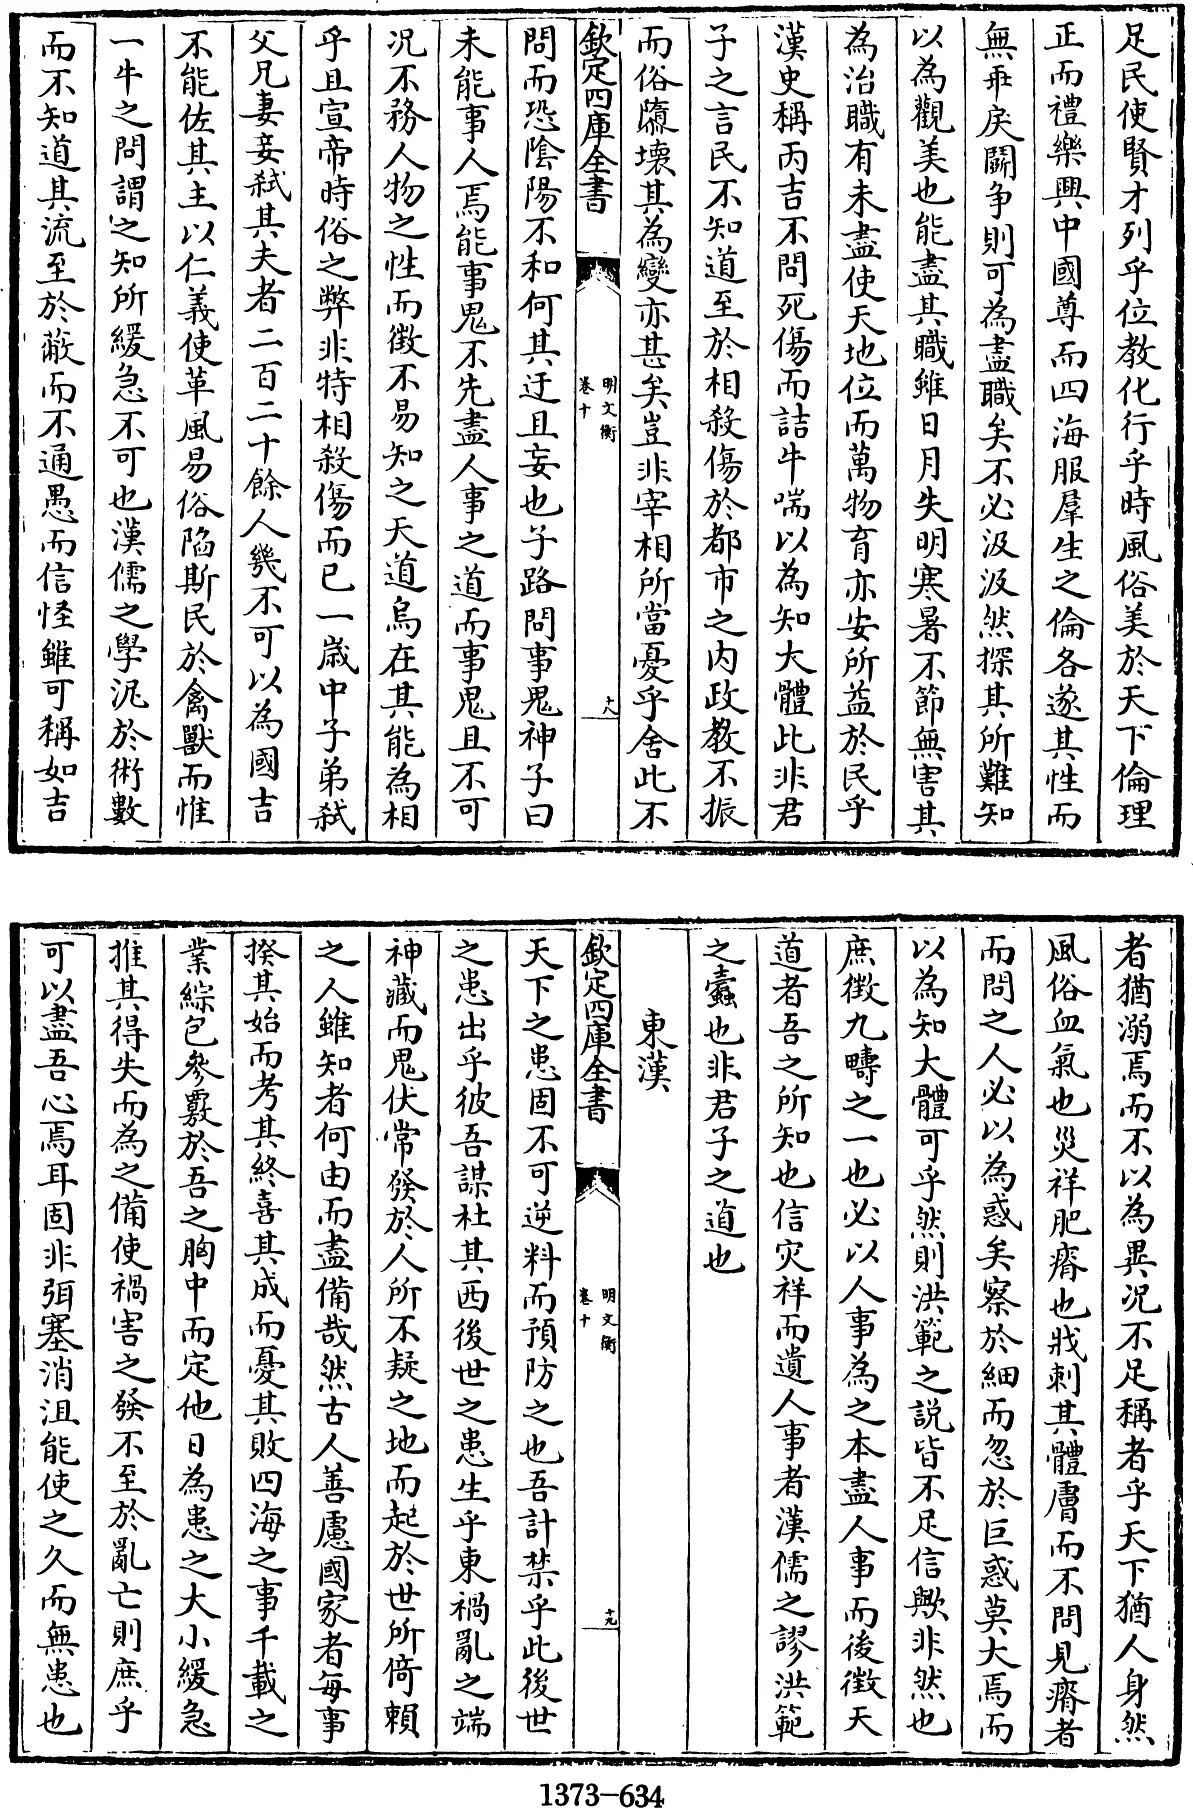 足民使賢才列乎位教化行乎時風俗美於天下倫理
正而禮樂興中國尊而四海服羣生之倫各遂其性而
無乖戾鬬争則可為盡職矣不必汲汲然探其所難知
以為觀美也能盡其職雖日月失明寒暑不節無害其
為治職有未盡使天地位而萬物育亦安所益於民乎
漢史稱丙吉不問死傷而詰牛喘以為知大體此非君
子之言民不知道至於相殺傷於都市之内政教不振
而俗隳壊其為變亦甚矣豈非宰相所當憂乎舍此不
欽定四庫全書
明文衡
卷十
十八
問而恐隂陽不和何其迂且妄也子路問事鬼神子曰
未能事人焉能事鬼不先盡人事之道而事鬼且不可
况不務人物之性而徵不易知之天道烏在其能為相
乎且宣帝時俗之弊非特相殺傷而已一歳中子弟弑
父兄妻妾弑其夫者二百二十餘人幾不可以為國吉
不能佐其主以仁義使革風易俗陷斯民於禽獸而惟
一牛之問謂之知所緩急不可也漢儒之學泥於術數
而不知道其流至於蔽而不通愚而信怪雖可稱如吉
者猶溺焉而不以為異况不足稱者乎天下猶人身然
風俗血氣也災祥肥瘠也戕刺其體膚而不問見瘠者
而問之人必以為惑矣察於細而忽於巨惑莫大焉而
以為知大體可乎然則洪範之説皆不足信歟非然也
庶徴九疇之一也必以人事為之本盡人事而後徴天
道者吾之所知也信灾祥而遺人事者漢儒之謬洪範
之蠧也非君子之道也
東漢
欽定四庫全書
明文衡
卷十
十九
天下之患固不可逆料而預防之也吾計禁乎此後世
之患出乎彼吾謀杜其西後世之患生乎東禍亂之端
神藏而鬼伏常發於人所不疑之地而起於世所倚賴
之人雖知者何由而盡備哉然古人善慮國家者每事
揆其始而考其終喜其成而憂其敗四海之事千載之
業綜包參覈於吾之胸中而定他日為患之大小緩急
推其得失而為之備使禍害之發不至於亂亡則庶乎
可以盡吾心焉耳固非弭塞消沮能使之久而無患也
1373-634